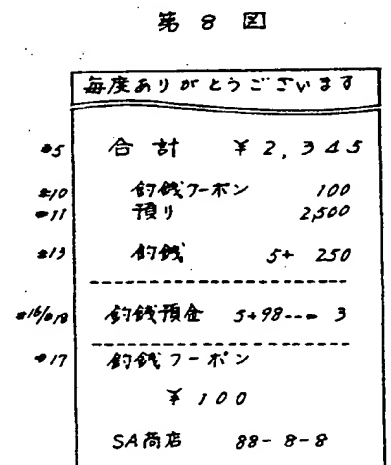 第 8 図
毎度ありがとうございます
#5 合計 ¥2,345
#10 釣銭クーポン 100
#11 預り 2,500
#13 釣銭 5+ 250
#16/#18 釣銭預金 5+98--- 3
#17 釣銭クーポン
¥100
SA商店 88-8-8